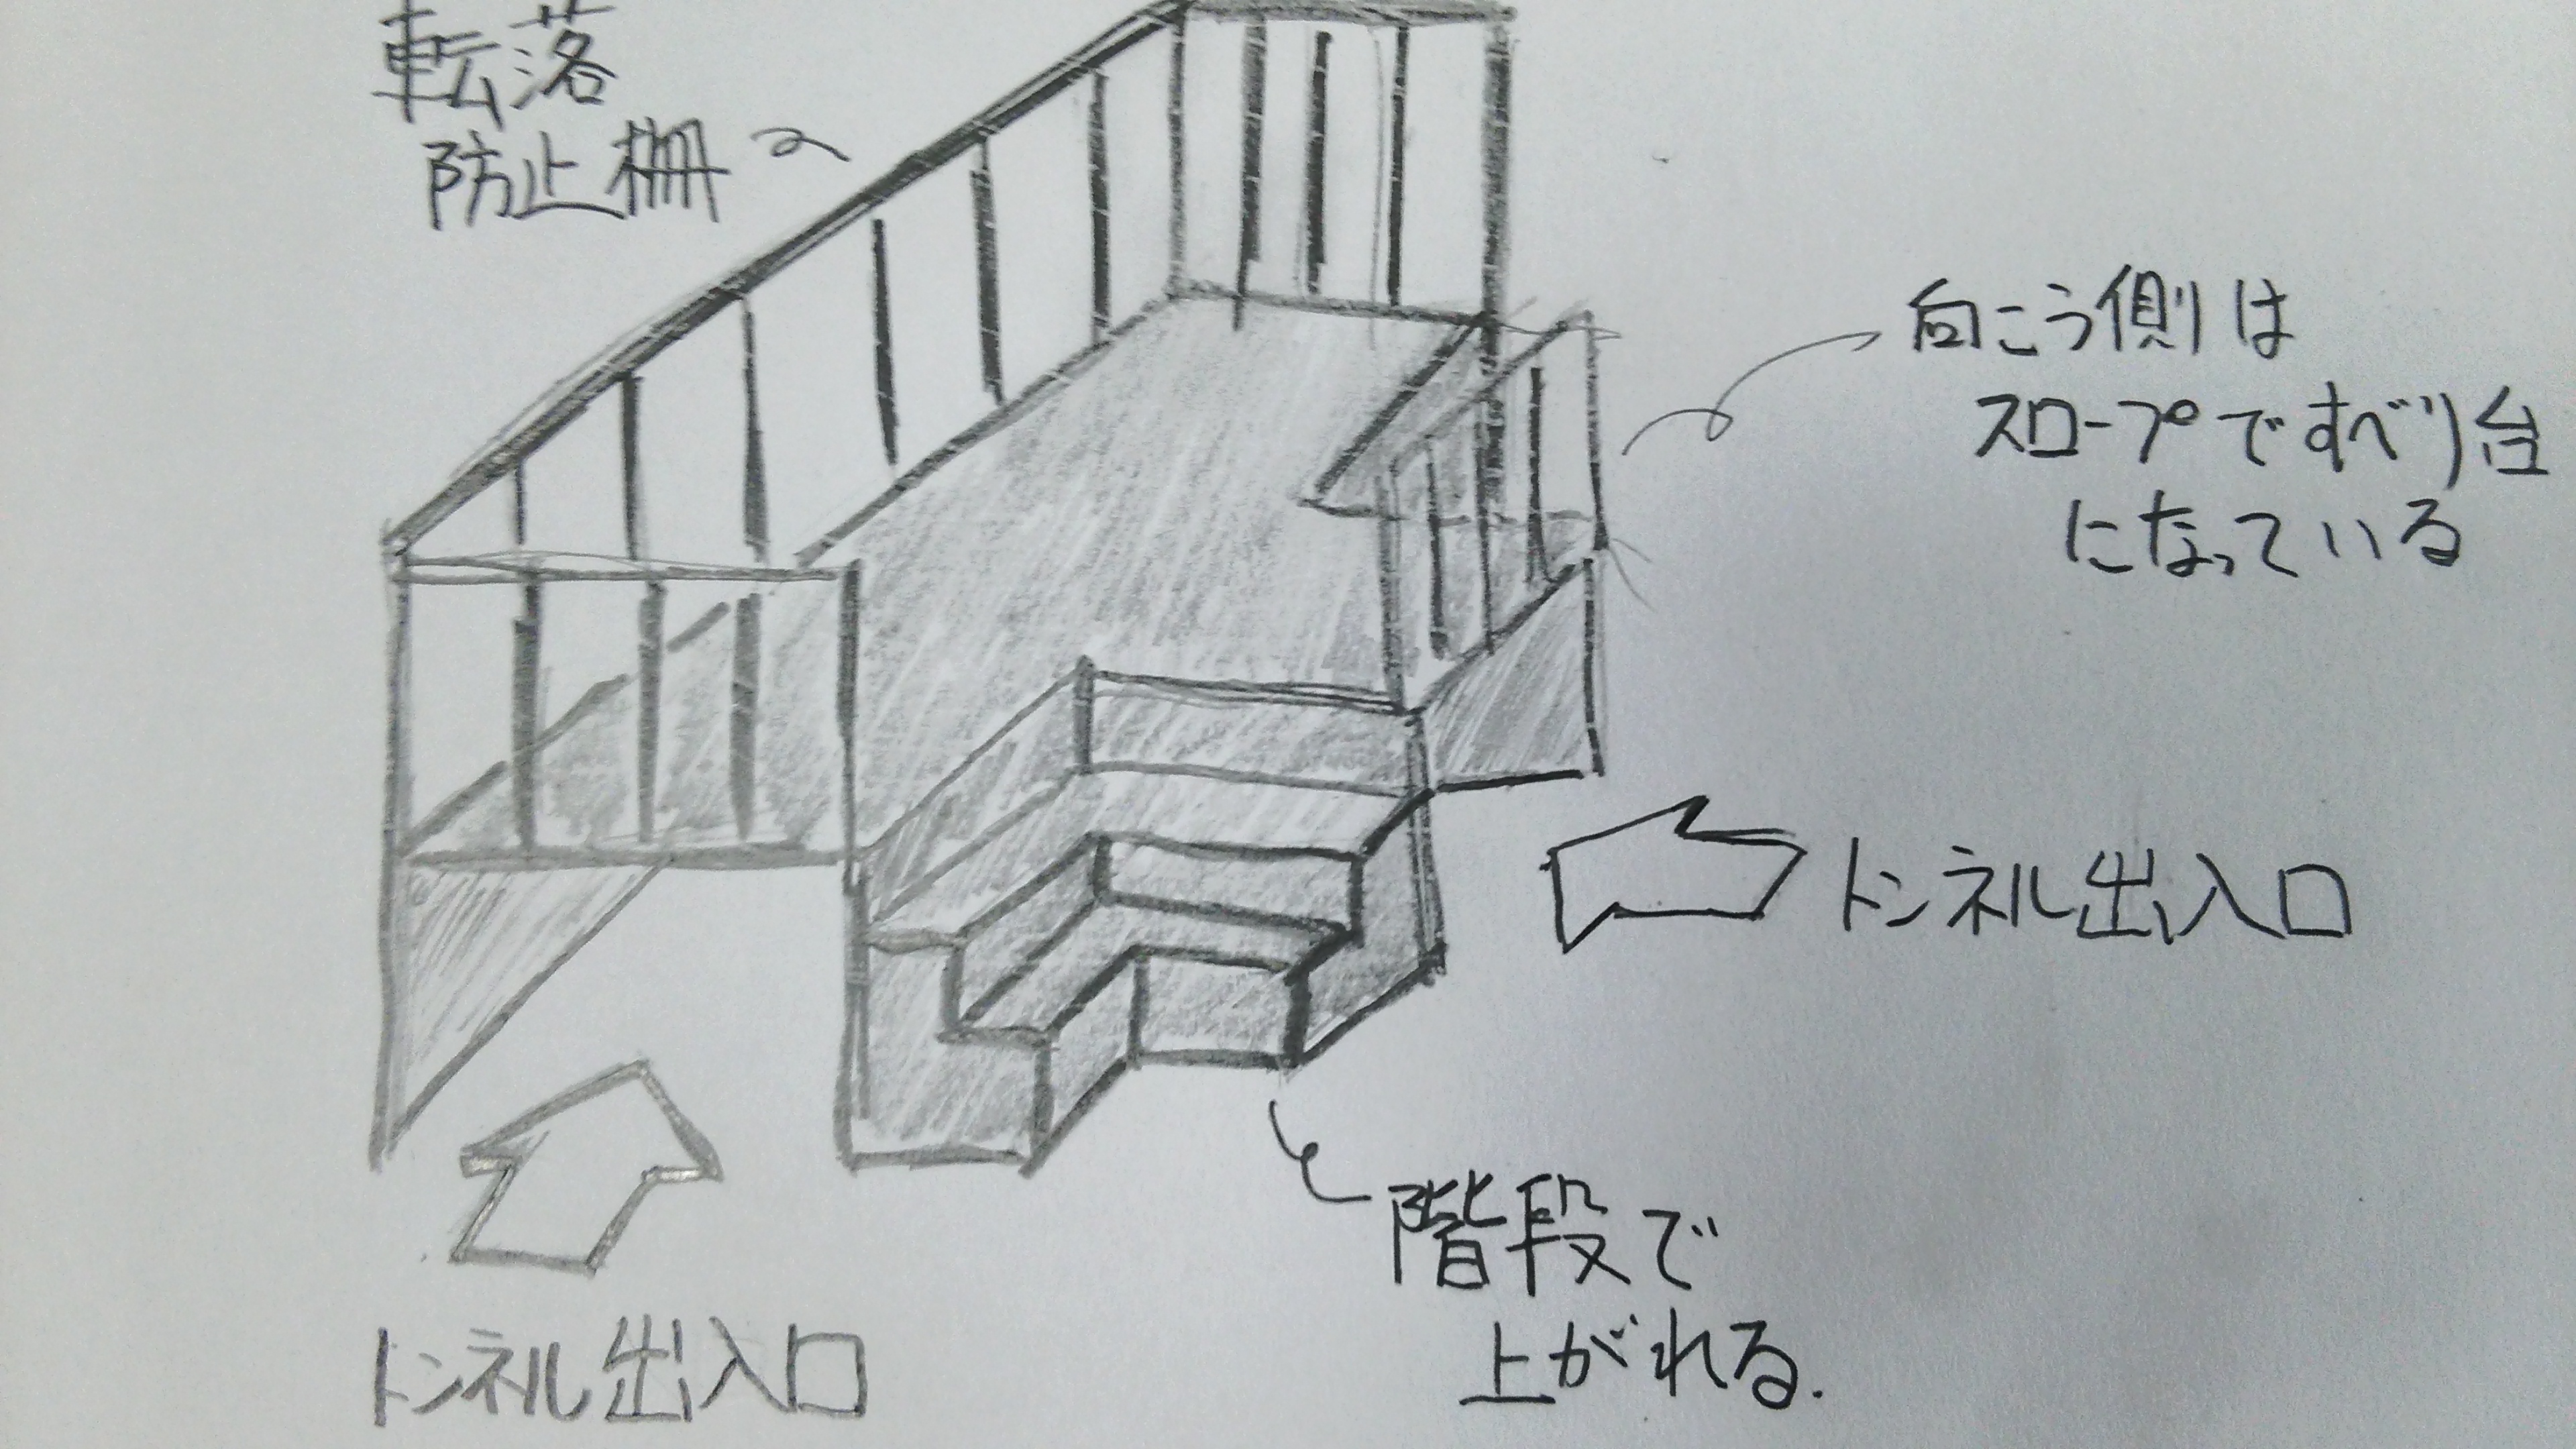 転落
防止柵
向こう側は
スロープですべり台
になっている
トンネル出入口
階段で
上がれる.
トンネル出入口